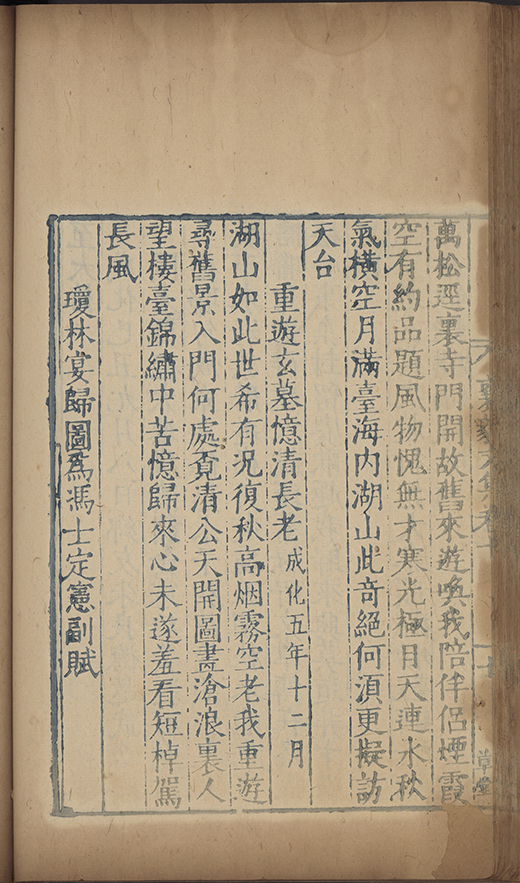 萬松逕裏寺門開故舊來遊喚我陪伴侶煙霞
空有約品題風物愧無才寒光極目天連水秋
氣橫空月滿臺海內湖山此奇絕何湏更擬訪
天台
重遊玄墓憶清長老成化五年十二月
湖山如此世希有况復秋高烟霧空老我重遊
尋舊景入門何處覔清公天開圖畫滄浪裏人
望樓臺錦繡中苦憶歸來心未遂羞看短棹駕
長風
瓊林宴歸圖爲馮士定憲副賦